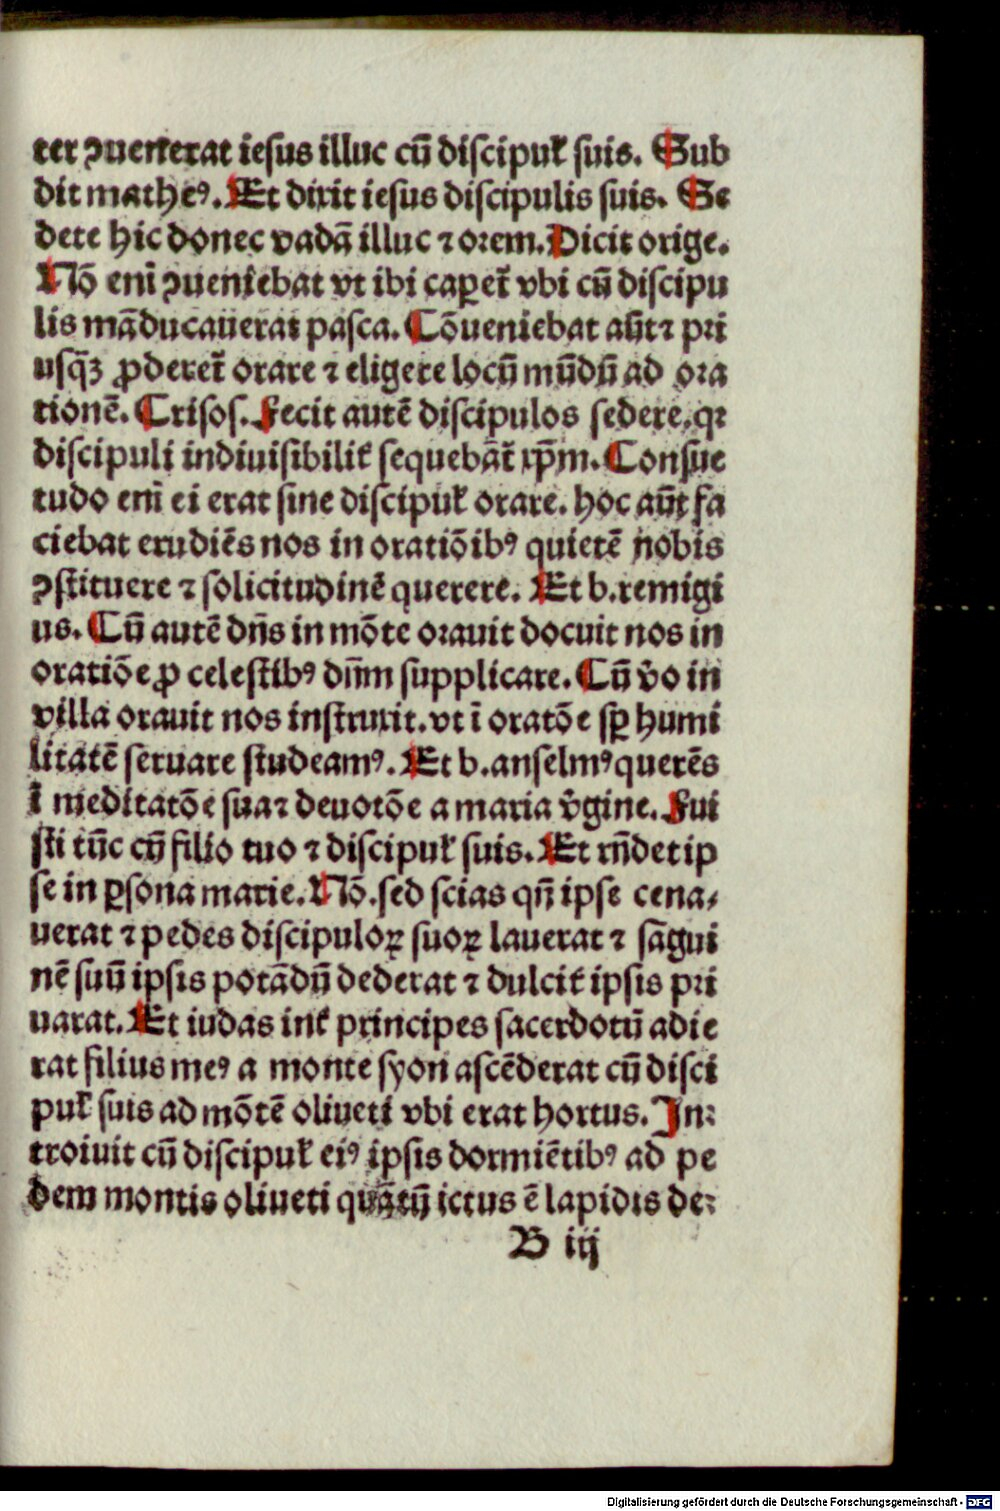 ter ꝯuenerat iesus illuc cū discipuƚ suis. Sub
dit matheꝰ. Et dixit iesus discipulis suis. Se
dete hic donec vadā illuc ⁊ orem. Dicit orige.
Nō eni̅ ꝯueniebat vt ibi caꝑet̄ vbi cū discipu
lis māducauerat pasca. Cōueniebat aūt ⁊ pri
usq̄ꝫ ꝓderet̄ orare ⁊ eligere locū mūdū ad ora
tionē. Crisos. Fecit autē discipulos sedere, qꝛ
discipuli indiuisibilit̄ sequebāt̄ xp̄m. Consue
tudo eni̅ ei erat sine discipuƚ orare. hoc aūt fa
ciebat erudiēs nos in oratiōibꝰ quietē nobis
ꝯstituere ⁊ solicitudinē querere. Et b. remigi
us. Cū autē dn̄s in mōte orauit docuit nos in
oratiōe ꝓ celestibꝰ dn̄m supplicare. Cū v̄o in
villa orauit nos instruxit. vt ī oratōe sꝑ humi
litatē seruare studeamꝰ. Et b. anselmꝰ querēs
ī meditatōe sua ⁊ deuotōe a maria v̄gine. Fui
sti tūc cū filio tuo ⁊ discipuƚ suis. Et rn̄det ip
se in ꝑsona marie. Nō. sed scias qn̄ ipse cena⸗
uerat ⁊ pedes discipuloꝝ suoꝝ lauerat ⁊ sāgui
nē suū ipsis potādū dederat ⁊ dulcit̄ ipsis pri
uarat. Et iudas int̄ principes sacerdotū adie
rat filius meꝰ a monte syon ascēderat cū disci
puƚ suis ad mōtē oliueti vbi erat hortus. In⸗
troiuit cū discipuƚ eiꝰ ipsis dormiētibꝰ ad pe
dem montis oliueti quātū ictus ē lapidis de⸗
B iij
Digitalisierung gefördert durch die Deutsche Forschungsgemeinschaft - DFG